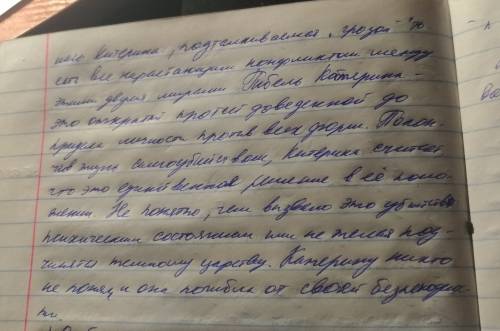 ного Катерина, подталкиваемая "грозой" то
есть все нарастающим конфликтом между
этими двумя мирами. Гибель Катерины -
это открытый протест доведенной до
предела личности против всех форм. Покон-
чив жизнь самоубийством, Катерина считает,
что это единственное решение в её поло-
жении. Не понятно, чем вызвано это убийство
психическим состоянием или не желая под-
чинятся темному царству. Катерину никто
не понял, и она погибла от своей безысходнос-
ти.